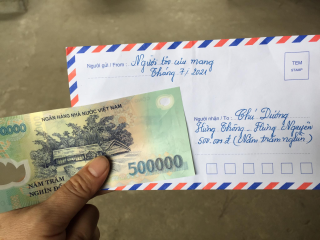 Người gửi / From: Người tôi cưu mang
Tháng 7/2021
TEM
STAMP
Người nhận / To: Chú Dương
Hưng Thông - Hưng Nguyên
500.000đ (Năm trăm nghìn)
NGÂN HÀNG NHÀ NƯỚC VIỆT NAM
500000
NĂM TRĂM
NGHÌN Đ